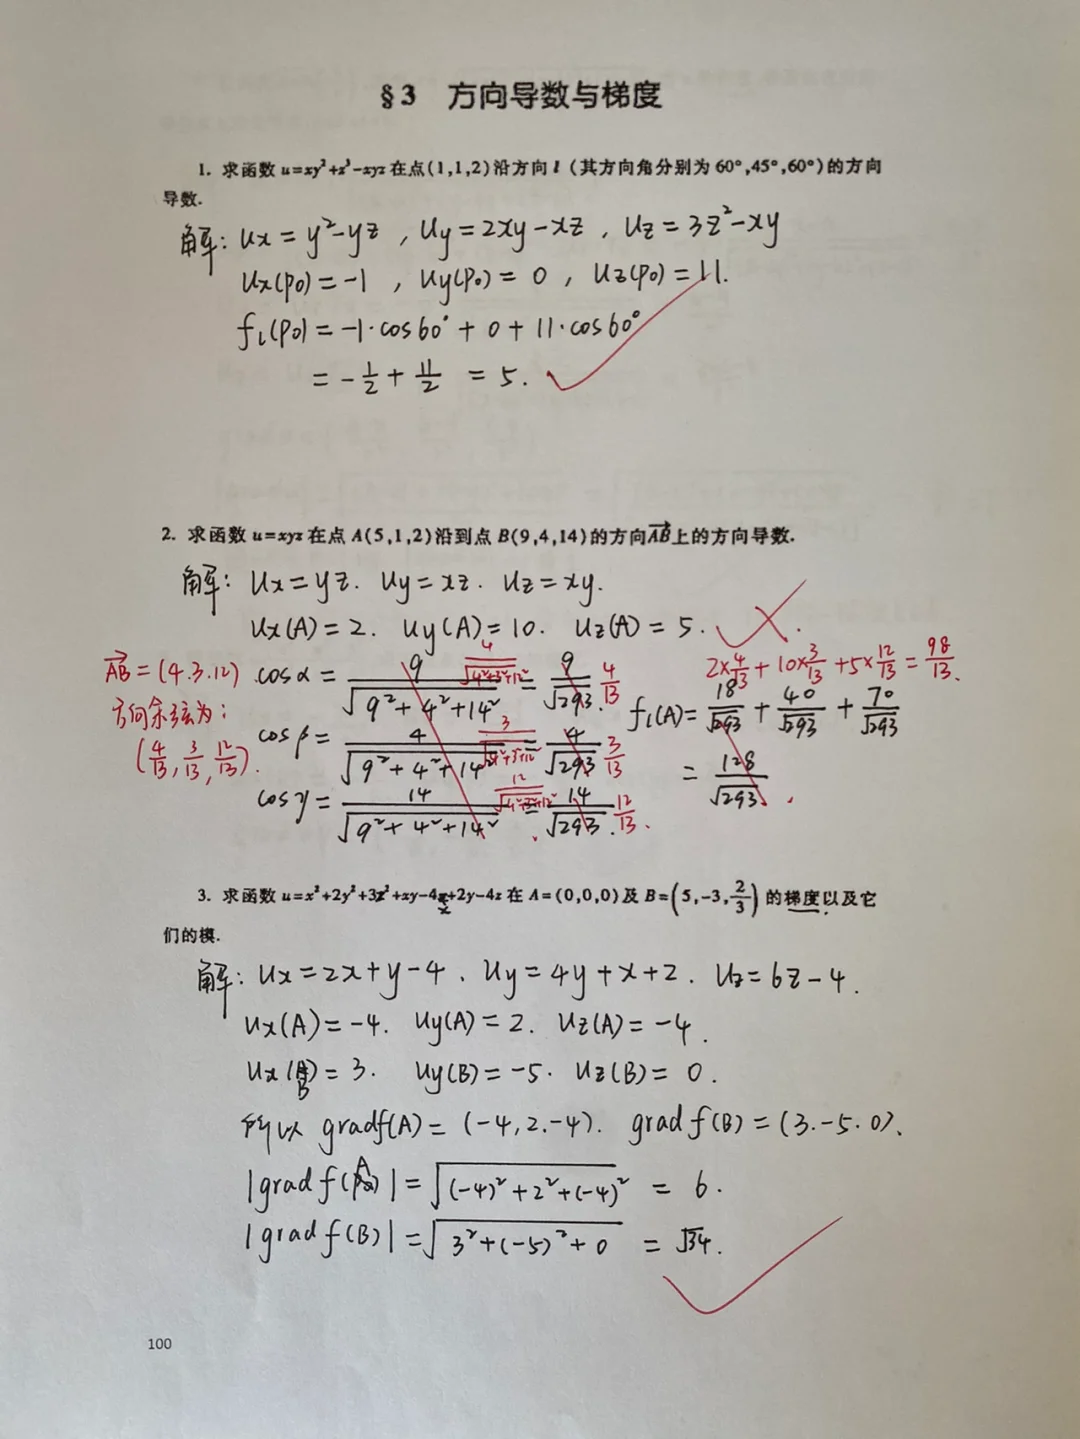 §3 方向导数与梯度
1. 求函数 u=xy²+z³-xyz 在点(1,1,2)沿方向 l (其方向角分别为 60°,45°,60°)的方向
导数.
解: Ux = y²-yz , Uy = 2xy-xz , Uz = 3z²-xy
Ux(P0) = -1 , Uy(P0) = 0 , Uz(P0) = 11.
fl(P0) = -1·cos60° + 0 + 11·cos60°
= -1/2 + 11/2 = 5.
2. 求函数 u=xyz 在点 A(5,1,2)沿到点 B(9,4,14)的方向AB上的方向导数.
解: Ux = yz. Uy = xz. Uz = xy.
Ux(A) = 2. Uy(A) = 10. Uz(A) = 5.
AB = (4.3.12)
方向余弦为:
(4/13, 3/13, 12/13).
cosα = 9/√(9²+4²+14²) = 9/√293. 4/√(4²+3²+12²) 4/13
cosβ = 4/√(9²+4²+14²) = 4/√293 3/√(4²+3²+12²) 3/13
cosγ = 14/√(9²+4²+14²) = 14/√293. 12/√(4²+3²+12²) 12/13.
2×4/13 + 10×3/13 + 5×12/13 = 98/13.
fl(A) = 18/√293 + 40/√293 + 70/√293
= 128/√293.
3. 求函数 u=x²+2y²+3z²+xy-4x+2y-4z 在 A=(0,0,0)及 B=(5,-3,2/3) 的梯度以及它
们的模.
解: Ux = 2x+y-4 . Uy = 4y+x+2. Uz = 6z-4.
Ux(A) = -4. Uy(A) = 2. Uz(A) = -4.
Ux(B) = 3. Uy(B) = -5. Uz(B) = 0.
所以 gradf(A) = (-4,2.-4). grad f(B) = (3.-5.0).
|grad f(A)| = √((-4)²+2²+(-4)²) = 6.
|grad f(B)| = √(3²+(-5)²+0) = √34.
100